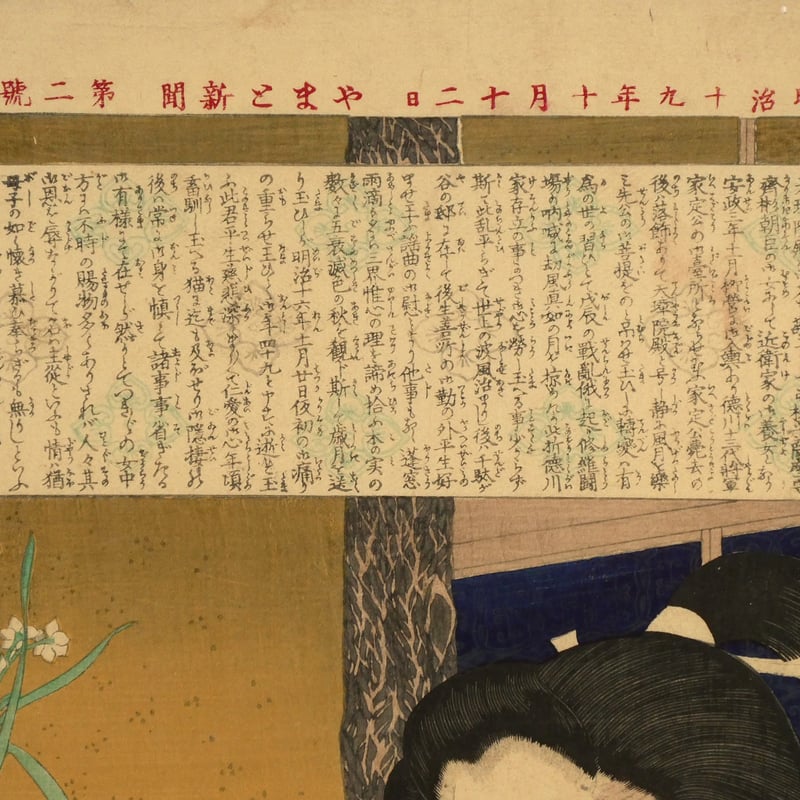 治十九年十月十二日 やまと新聞 第二號
齊彬朝臣の御女にして近衛家の御養女となり
安政三年十二月柳營へ御入輿あり徳川十三代将軍
家定公の御臺所とならせ玉ひ家定公薨去の
後は落飾ありて天璋院殿と号し静に風月を樂
み先公の御菩提をのみ吊らせ玉ひしが轉変は有
為の世の習ひとて戊辰の戦亂俄に起り修羅闘
場の吶喊は劫風真如の月を掠めたり此折徳川
家存亡の事につき御心を勞し玉へる事少からず
斯て此亂平らぎて世上の疾風治まりし後は千駄が
谷の邸に在して後生善所の御勤の外平生好
ませ玉ふ謡曲の御慰より他事もなく蓬窓
雨滴もろとも三思惟心の理を諦め拾ふ木の実の
數々に五衰滅色の秋を観ド斯て歳月を送
り玉ひしが明治十六年十一月廿日夜初の御痛り
の重らせ玉ひて御年四十九と申すに逝せ玉
ふ此君平生慈悲深くゐまして仁愛の御心年頃
畜馴し玉へる猫に迄も及ぼせり御隠棲の
後は常に御身を慎て諸事事省ぎたる
御有様にて在せしが然りとてつき〴〵の女中
方には不時の賜物多くありされば人々其
御恩を辱ながりて名は主從といへども情は猶
母子の如く懐き慕ひ奉らざるも無りしといふ